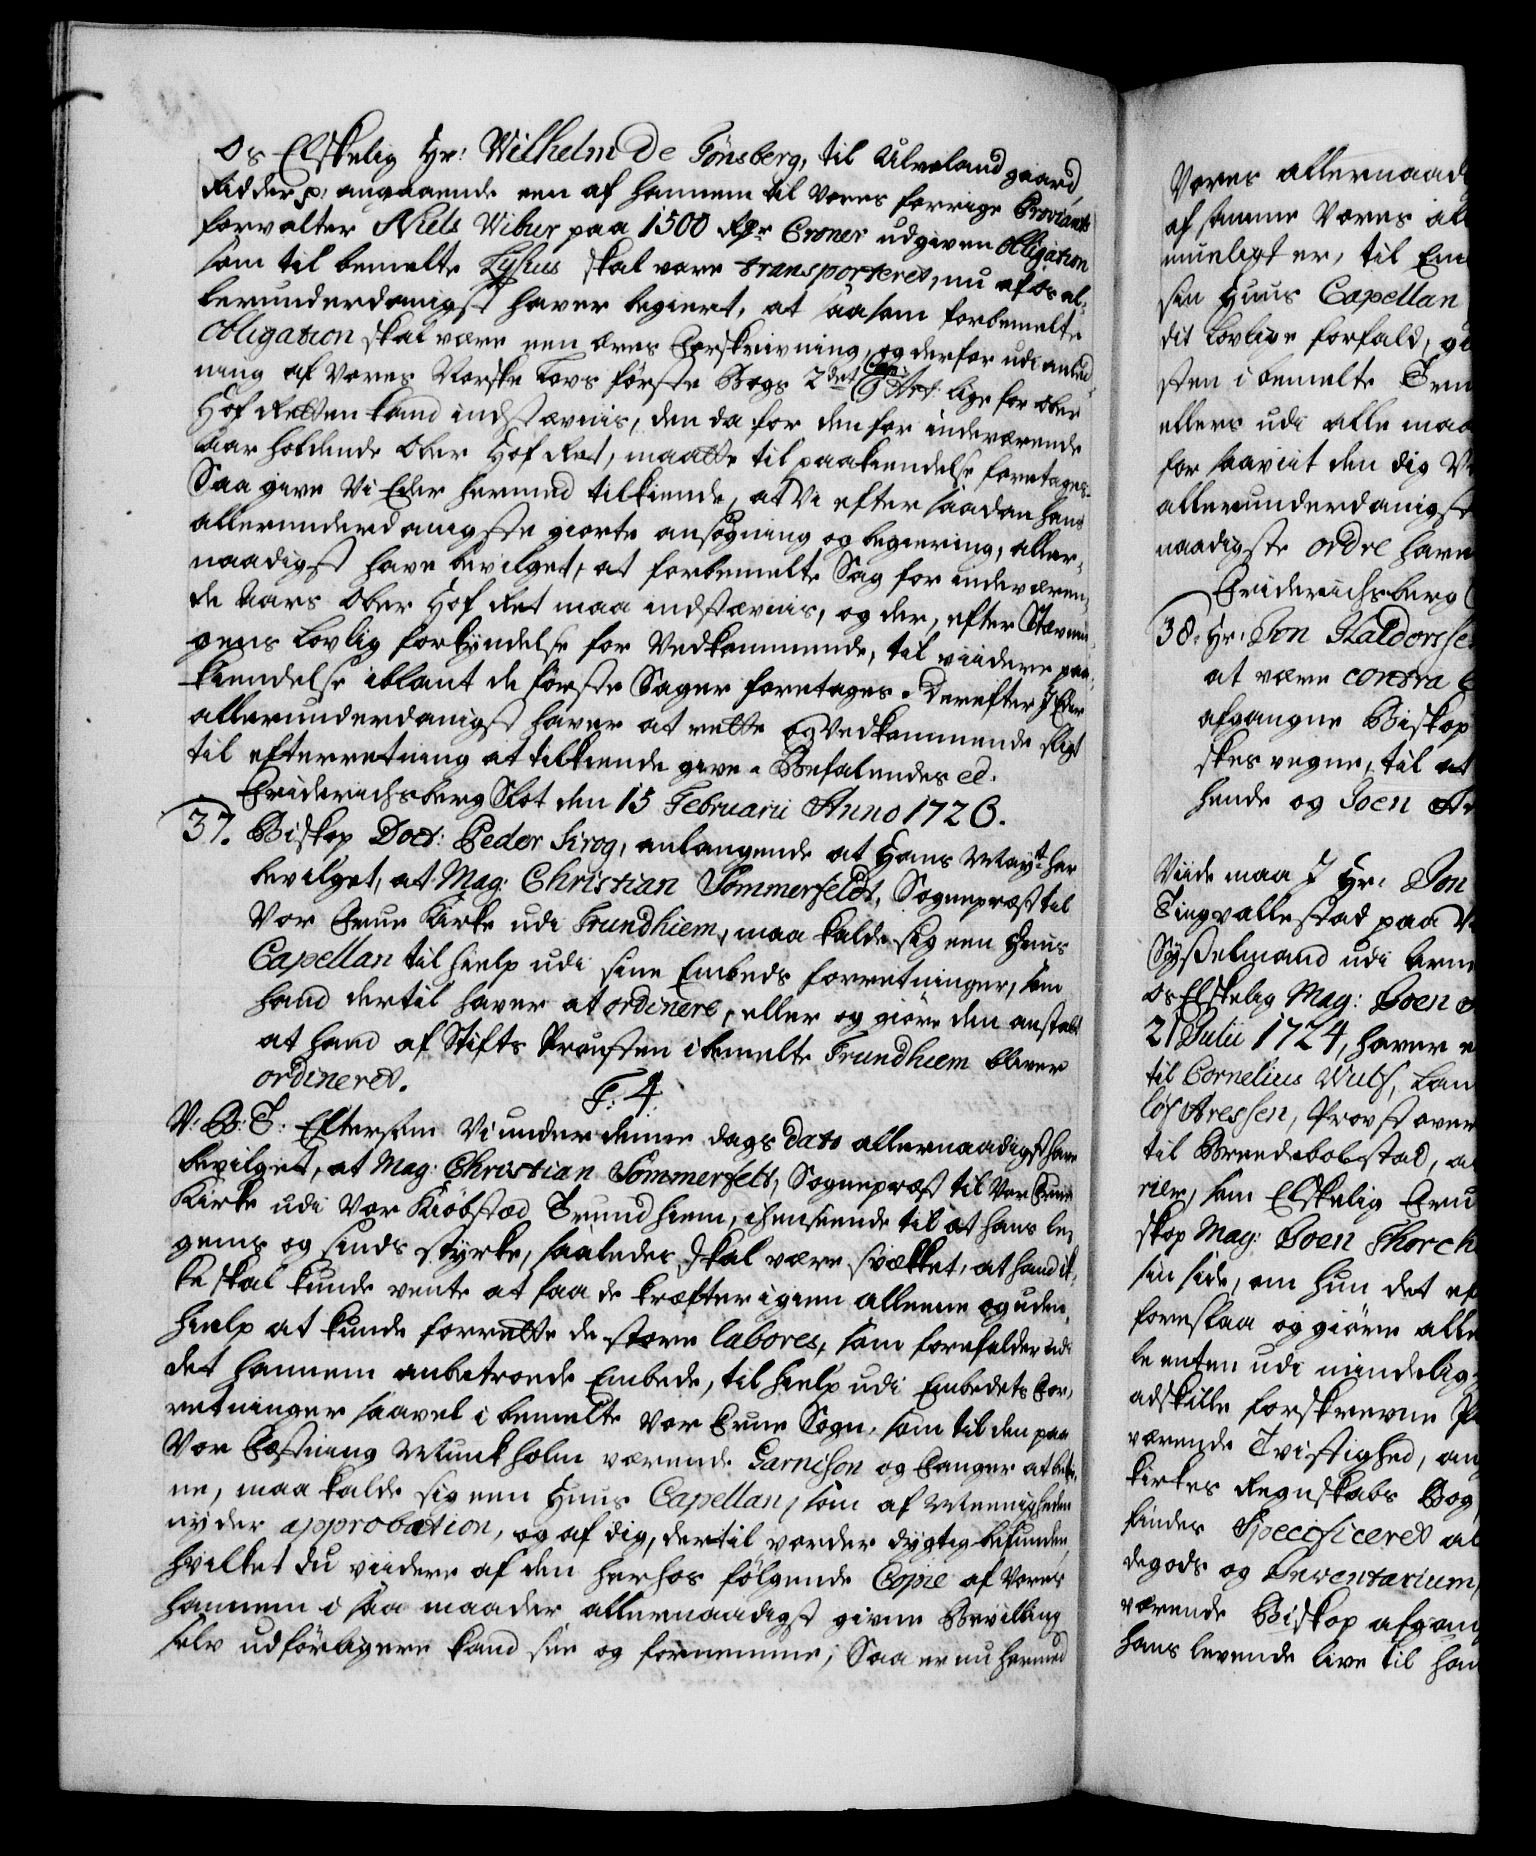 Os Elskelig Hr: Wilhelm De Tönsberg, til Ulveland gaard,
Ridder p: angaaende een af hannem til Vores forrige Proviant
forvalter Niels Wibur paa 1500 Rdr Croner udgiven Obligation
som til bemelte Lyhus skal være transporteret, nu af Os al-
lerunderdanigst haver begiert, at saasom forbemelte
Obligation skal være een æres Forskrivning, og derfor udi anled-
ning af Vores Norske Lovs første Bogs 2det Cap: Art: lige for Ober
Hof Retten kand indstævnis, den da for den for indeværende
aar holdende Ober Hof Ret, maatte til paakiendelse foretages.
Saa give Vi Eder hermed tilkiende, at Vi efter saadan hans
allerunderdanigste giorte ansøgning og begiering, aller-
naadigst have bevilget, at forbemelte Sag for indeværen-
de Aars Ober Hof Ret maa indstævnis, og der, efter Stævnin-
gens lovlig forkyndelse for Vedkommende, til viidere paa-
kiendelse iblant de første Sager foretages. Derefter I Eder
allerunderdanigst haver at rette og Vedkommende sligt
til efterretning at tilkiende give. Befalendes ed.
Friderichsberg Slot den 15 Februarii Anno 1726.
37. Biskop Doct: Peder Krog, anlangende at Hans Mayt. har
bevilget, at Mag: Christian Sommerfeldt, Sognepræst til
Vor Frue Kirke udi Trundhiem, maa kalde sig een Huus
Capellan til hielp udi sine Embeds forretninger, som
hand dertil haver at ordinere, eller og giøre den anstalt
at hand af Stifts Provsten i bemelte Trundhiem bliver
ordineret.
F: 4.
V: G: T: Eftersom Vi under denne dags dato allernaadigst have
bevilget, at Mag: Christian Sommerfelt, Sognepræst til Vor Frue
Kirke udi Vor Kiøbstæd Trundhiem, i henseende til at hans le-
gems og sinds styrke, saaledes skal være svækket, at hand ik-
ke skal kunde vente at faa de kræfter igien alleene og uden
hielp at kunde forrette de store labores, som forefalder udi
det hannem anbetroede Embede, til hielp udi Embedets For-
retninger saavel i bemelte Vor Frue Sogn, som til den paa
Vor Fæstning Munkholm værende Garnison og Fanger at betie-
ne, maa kalde sig een Huus Capellan, som af Meenigheden
nyder approbation, og af dig, dertil vorder dygtig befunden,
hvilket du viidere af den herhos følgende Copie af Vores
hannem i saa maader allernaadigst givne Bevilling
selv udførligere kand see og fornemme; Saa er nu hermed
Vores allernaad
af samme Vores al
mueligt er, til Em
sin Huus Capellan
dit lovlige forfald, gi
sten i bemelte Trun
ellers udi alle maa
for saaviit den dig V
allerunderdanigst
naadigste ordre have
Friderichsberg
38. Hr: Jon Haldorsse
at være contra
afgangne Biskop
skes vegne, til at
hende og Joen
Viide maa I Hr: Jon
Tingvallestad paa
Sysselmand udi
Os Elskelig Mag: Joen
21 Julii 1724, haver
til Cornelius Wulf, Lan
løs Aressen, Provst over
til Breedebolstad, a
rier, som Elskelig Fru
skop Mag: Joen Thorch
sin side, om hun det ef
foreslaa og giøre alle
le enten udi mindelig
adskille forskrevne P
værende Tvistighed, an
kirkes Regnskabs Bog,
findes Specificeret al
degods og Inventarium,
værende Biskop afgan
hans levende live til han